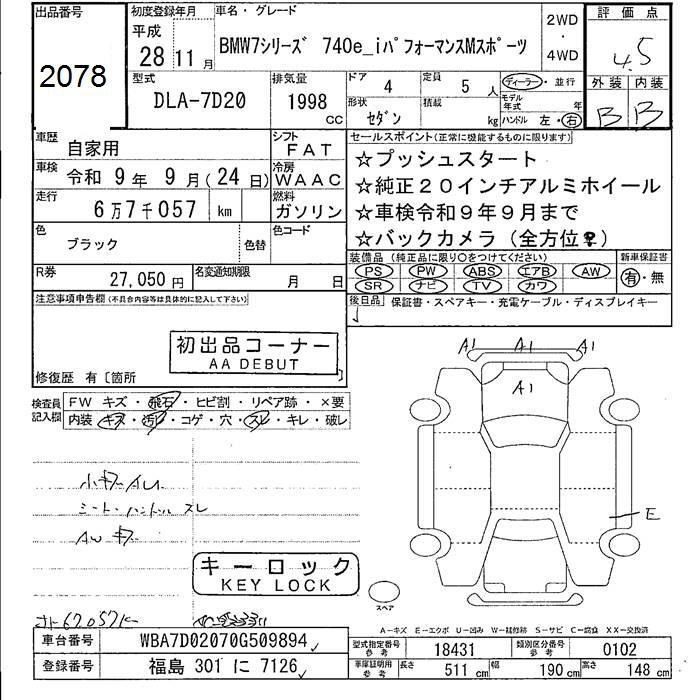 出品番号
2078
初度登録年月
平成
28年11月
車名・グレード
BMW7シリーズ 740e_iパフォーマンスMスポーツ
2WD
・
4WD
評価点
4.5
外装 内装
B B
型式
DLA-7D20
排気量
1998
CC
ドア
4
定員
5人
形状
セダン
積載
kg
ディーラー・並行
モデル年式 年
ハンドル 左・右
車歴
自家用
シフト
FAT
車検
令和9年9月(24日)
冷房
WAAC
走行
6万7千057 km
燃料
ガソリン
色
ブラック
色替
色コード
R券
27,050円
名変通知期限
月 日
セールスポイント(正常に機能するものに限ります)
☆プッシュスタート
☆純正20インチアルミホイール
☆車検令和9年9月まで
☆バックカメラ(全方位♀)
装備品(純正品に限り○をつけてください)
PS PW ABS エアB AW
SR ナビ TV カワ
新車保証書
有・無
後日品
保証書・スペアキー・充電ケーブル・ディスプレイキー
注意事項申告欄(不具合内容等は具体的に記入して下さい)
初出品コーナー
AA DEBUT
修復歴 有〔箇所
検査員記入欄
FW キズ・飛石・ヒビ割・リペア跡・×要
内装 キズ・汚レ・コゲ・穴・スレ・キレ・破レ
小キズAU
シート・ハンドルスレ
AWキズ
キーロック
KEY LOCK
A1 A1 A1
A1
E
スペア
A-キズ E-エクボ U-凹み W-補修跡 S-サビ C-腐食 XX-交換済
車台番号
WBA7D02070G509894
登録番号
福島 301 に 7126
型式指定番号参考
18431
類別区分番号参考
0102
車庫証明用参考
長さ 511 cm
幅 190 cm
高さ 148 cm